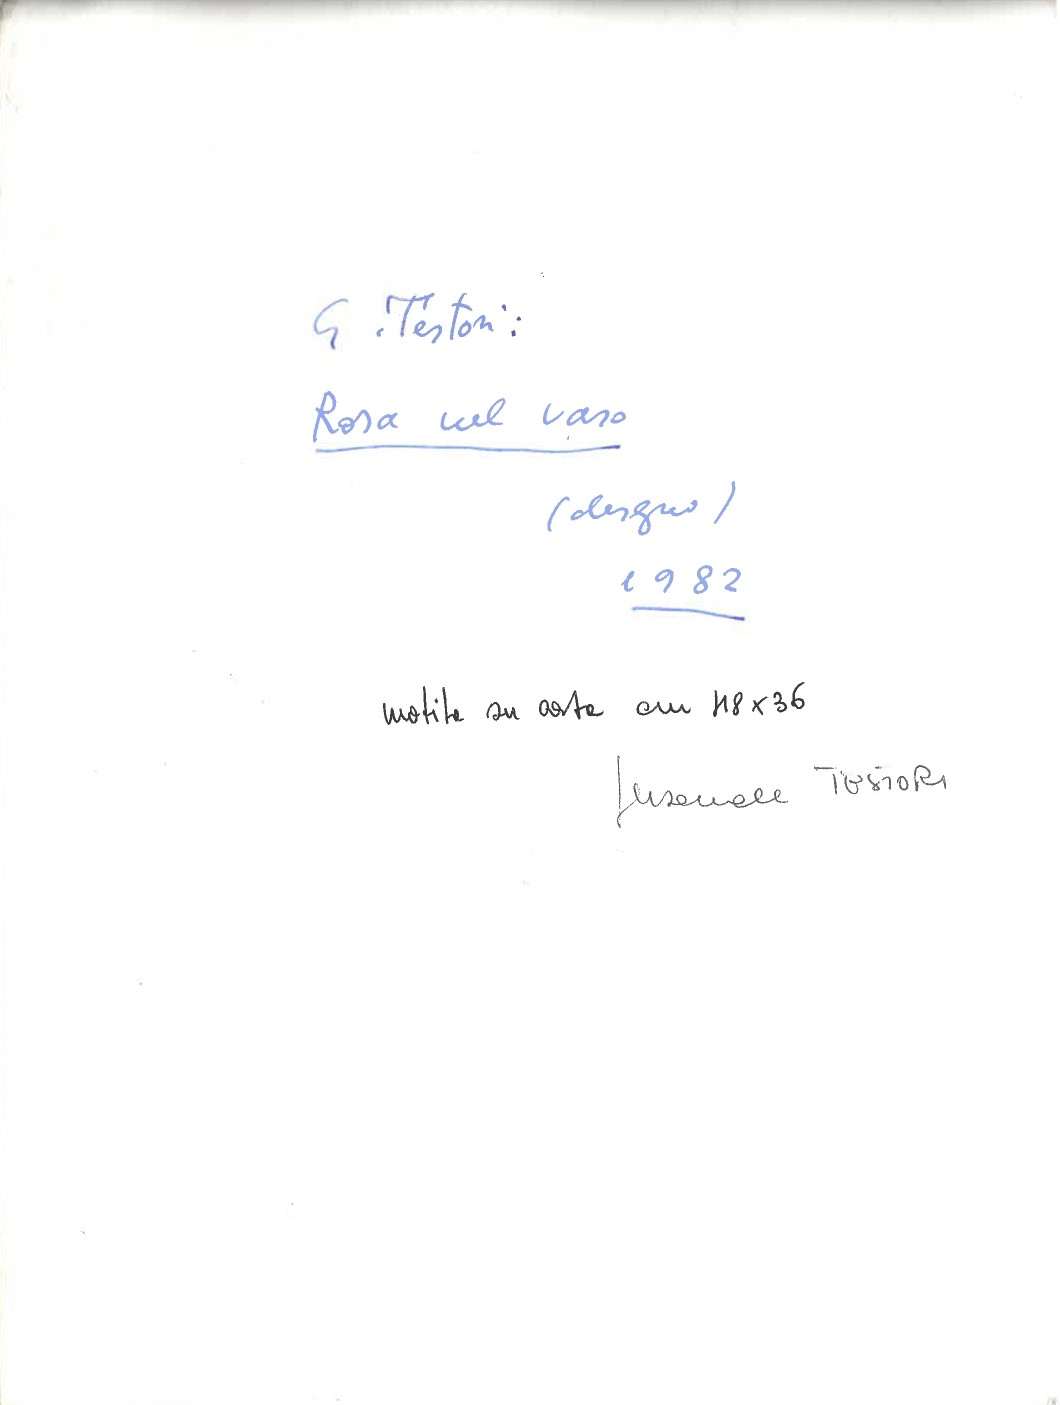 G. Testori:
Rosa nel vaso
(disegno)
1982
matita su carta cm 48x36
TESTORI